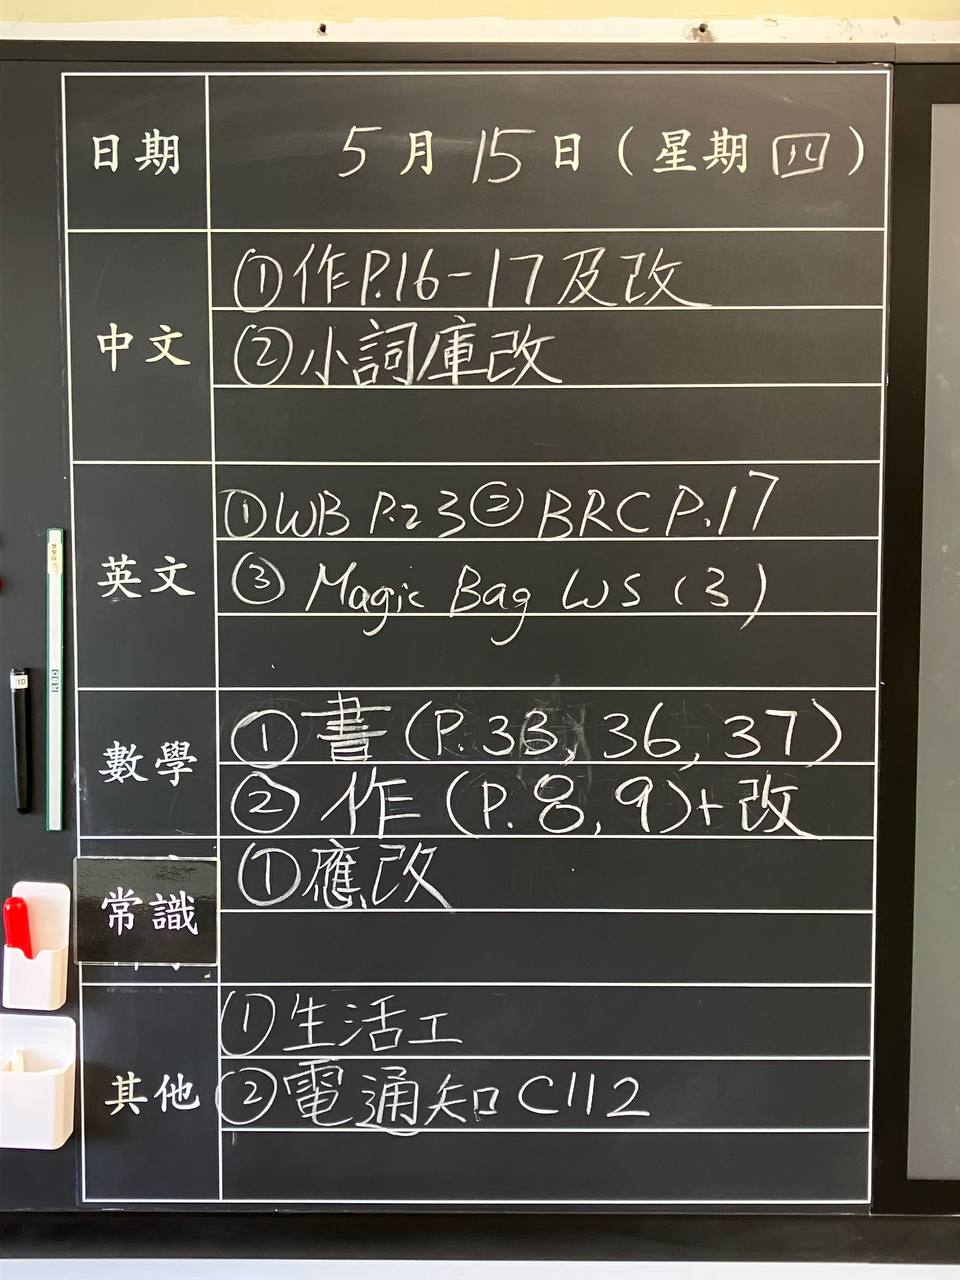 日期 5月15日(星期四)
中文
①作P.16-17及改
②小詞庫改
英文
①WB P.23 ② BRC P.17
③ Magic Bag WS (3)
數學
①書(P.33, 36, 37)
②作(P.8, 9)+改
常識
①應改
其他
①生活工
②電通知C112